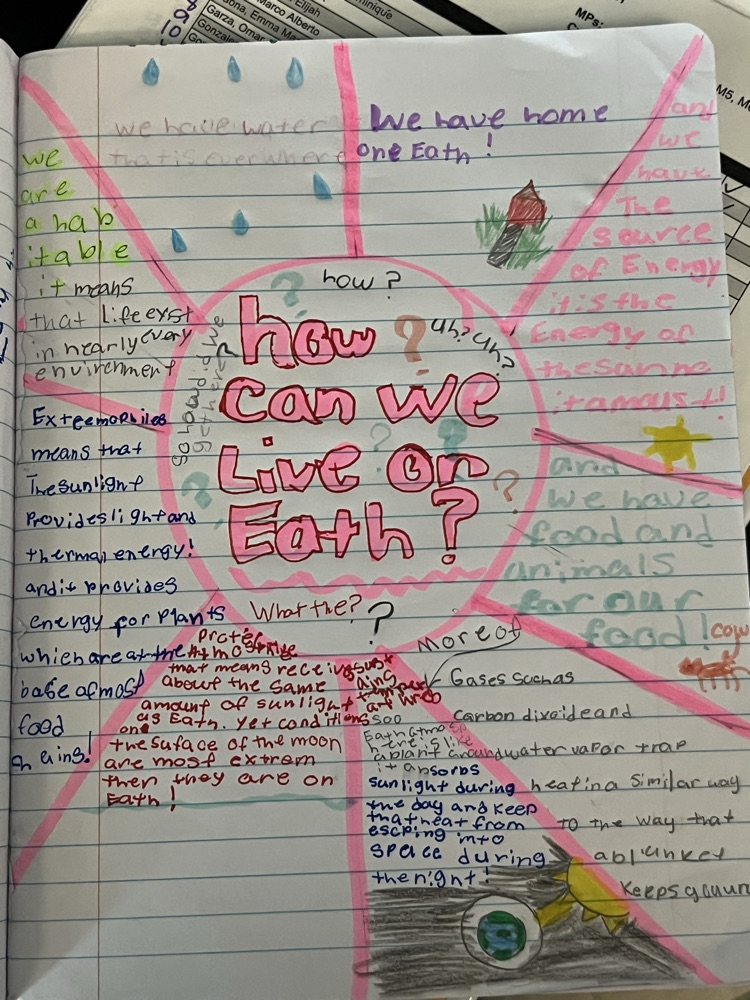 Elijah
Marco Alberto
ona, Emma M
Garza, Omar
Gonzale
MPs:
M5, M
how?
uh? uh?
how ?
can we
Live on
Eath?
What the?
?
we have water
that is everwhere
We have home
one Eath!
and
we
have
The
source
of Energy
it is the
Energy of
the sanne
itamust!
and
we have
food and
animals
for our
food!
cow
More of
Gases suchas
carbon dixoide and
water vapor trap
heat in a similar way
to the way that
a blanket
keeps
Eath atmo
here is like
a blant around
it absorbs
sunlight during
the day and keep
that heat from
escping into
space during
the night!
that means receives
about the same
amount of sunlight
as Eath. yet conditions
one
the suface of the moon
are most extrem
then they are on
Eath!
we
are
a hab
itable
it means
that Life exst
in nearly every
environment
Exteemophiles
means that
The sunlight
Provides light and
thermal energy!
and it provides
energy for Plants
which are at the
base of most
food
chains!